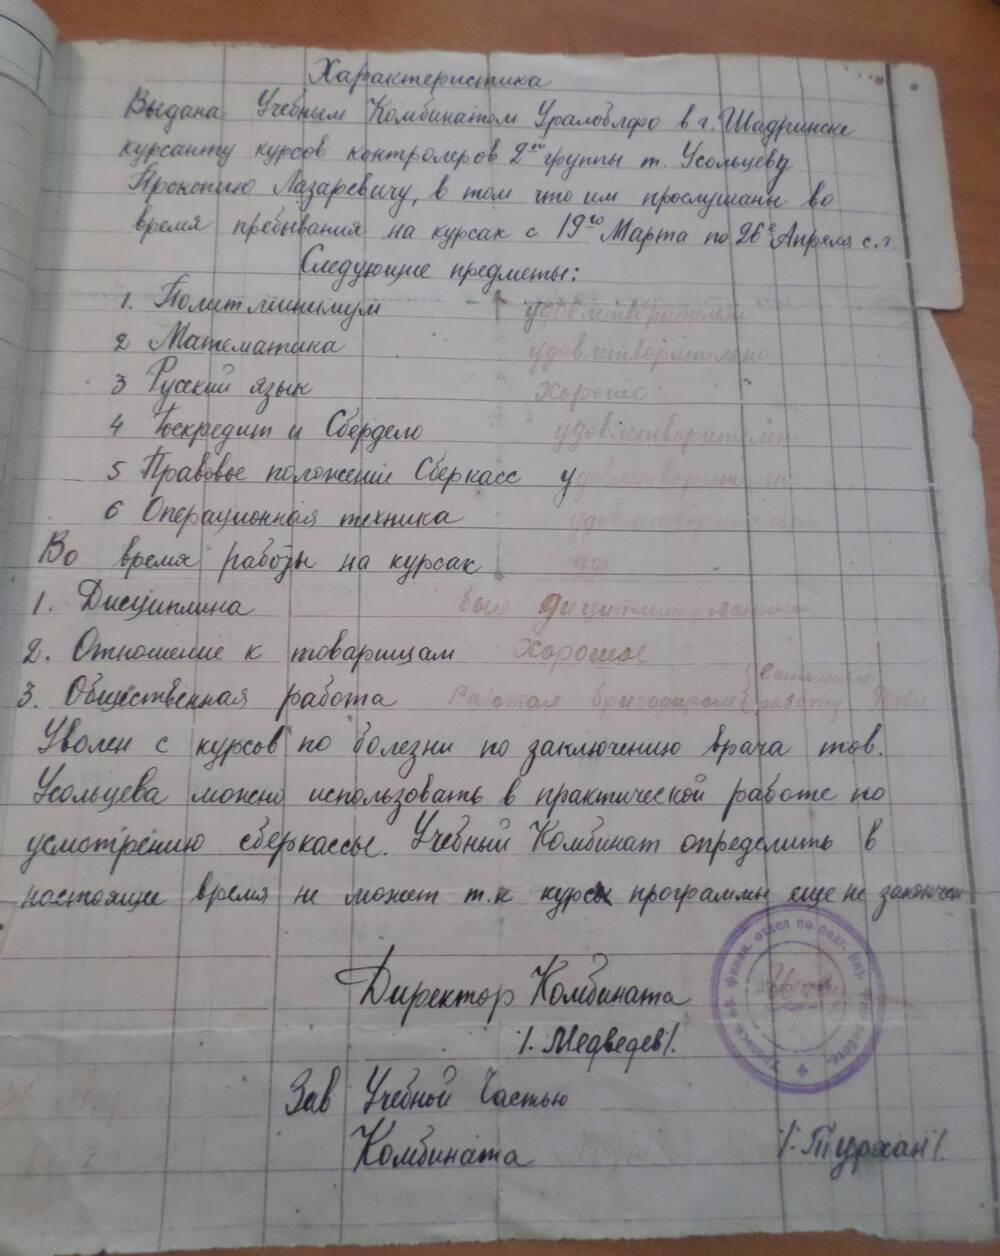 Характеристика
Выдана Учебным Комбинатом Уралоблфо в г. Шадринске
курсанту курсов контролеров 2ой группы т. Усольцеву
Прокопию Лазаревичу, в том что им прослушаны во
время пребывания на курсах с 19го Марта по 26е Апреля с.г.
Следующие предметы:
1. Политминимум удовлетворительно
2 Математика удовлетворительно
3 Русский язык Хорошо
4 Госкредит и Сбердело удовлетворительно
5 Правовое положение Сберкасс удовлетворительно
6 Операционная техника удовлетворительно
Во время работы на курсах
1. Дисциплина был дисциплинированный
2. Отношение к товарищам Хорошое
3. Общественная работа Работал бригадиром работу
Уволен с курсов по болезни по заключению врача тов.
Усольцева можно использовать в практической работе по
усмотрению сберкассы. Учебный Комбинат определить в
настоящие время не может т.к курсы программы еще не закончен
Директор Комбината
/. Медведев/.
Зав Учебной Частью
Комбината /. Турхан/.
Уральск. об. финан. отдел по подг. фин. работн.